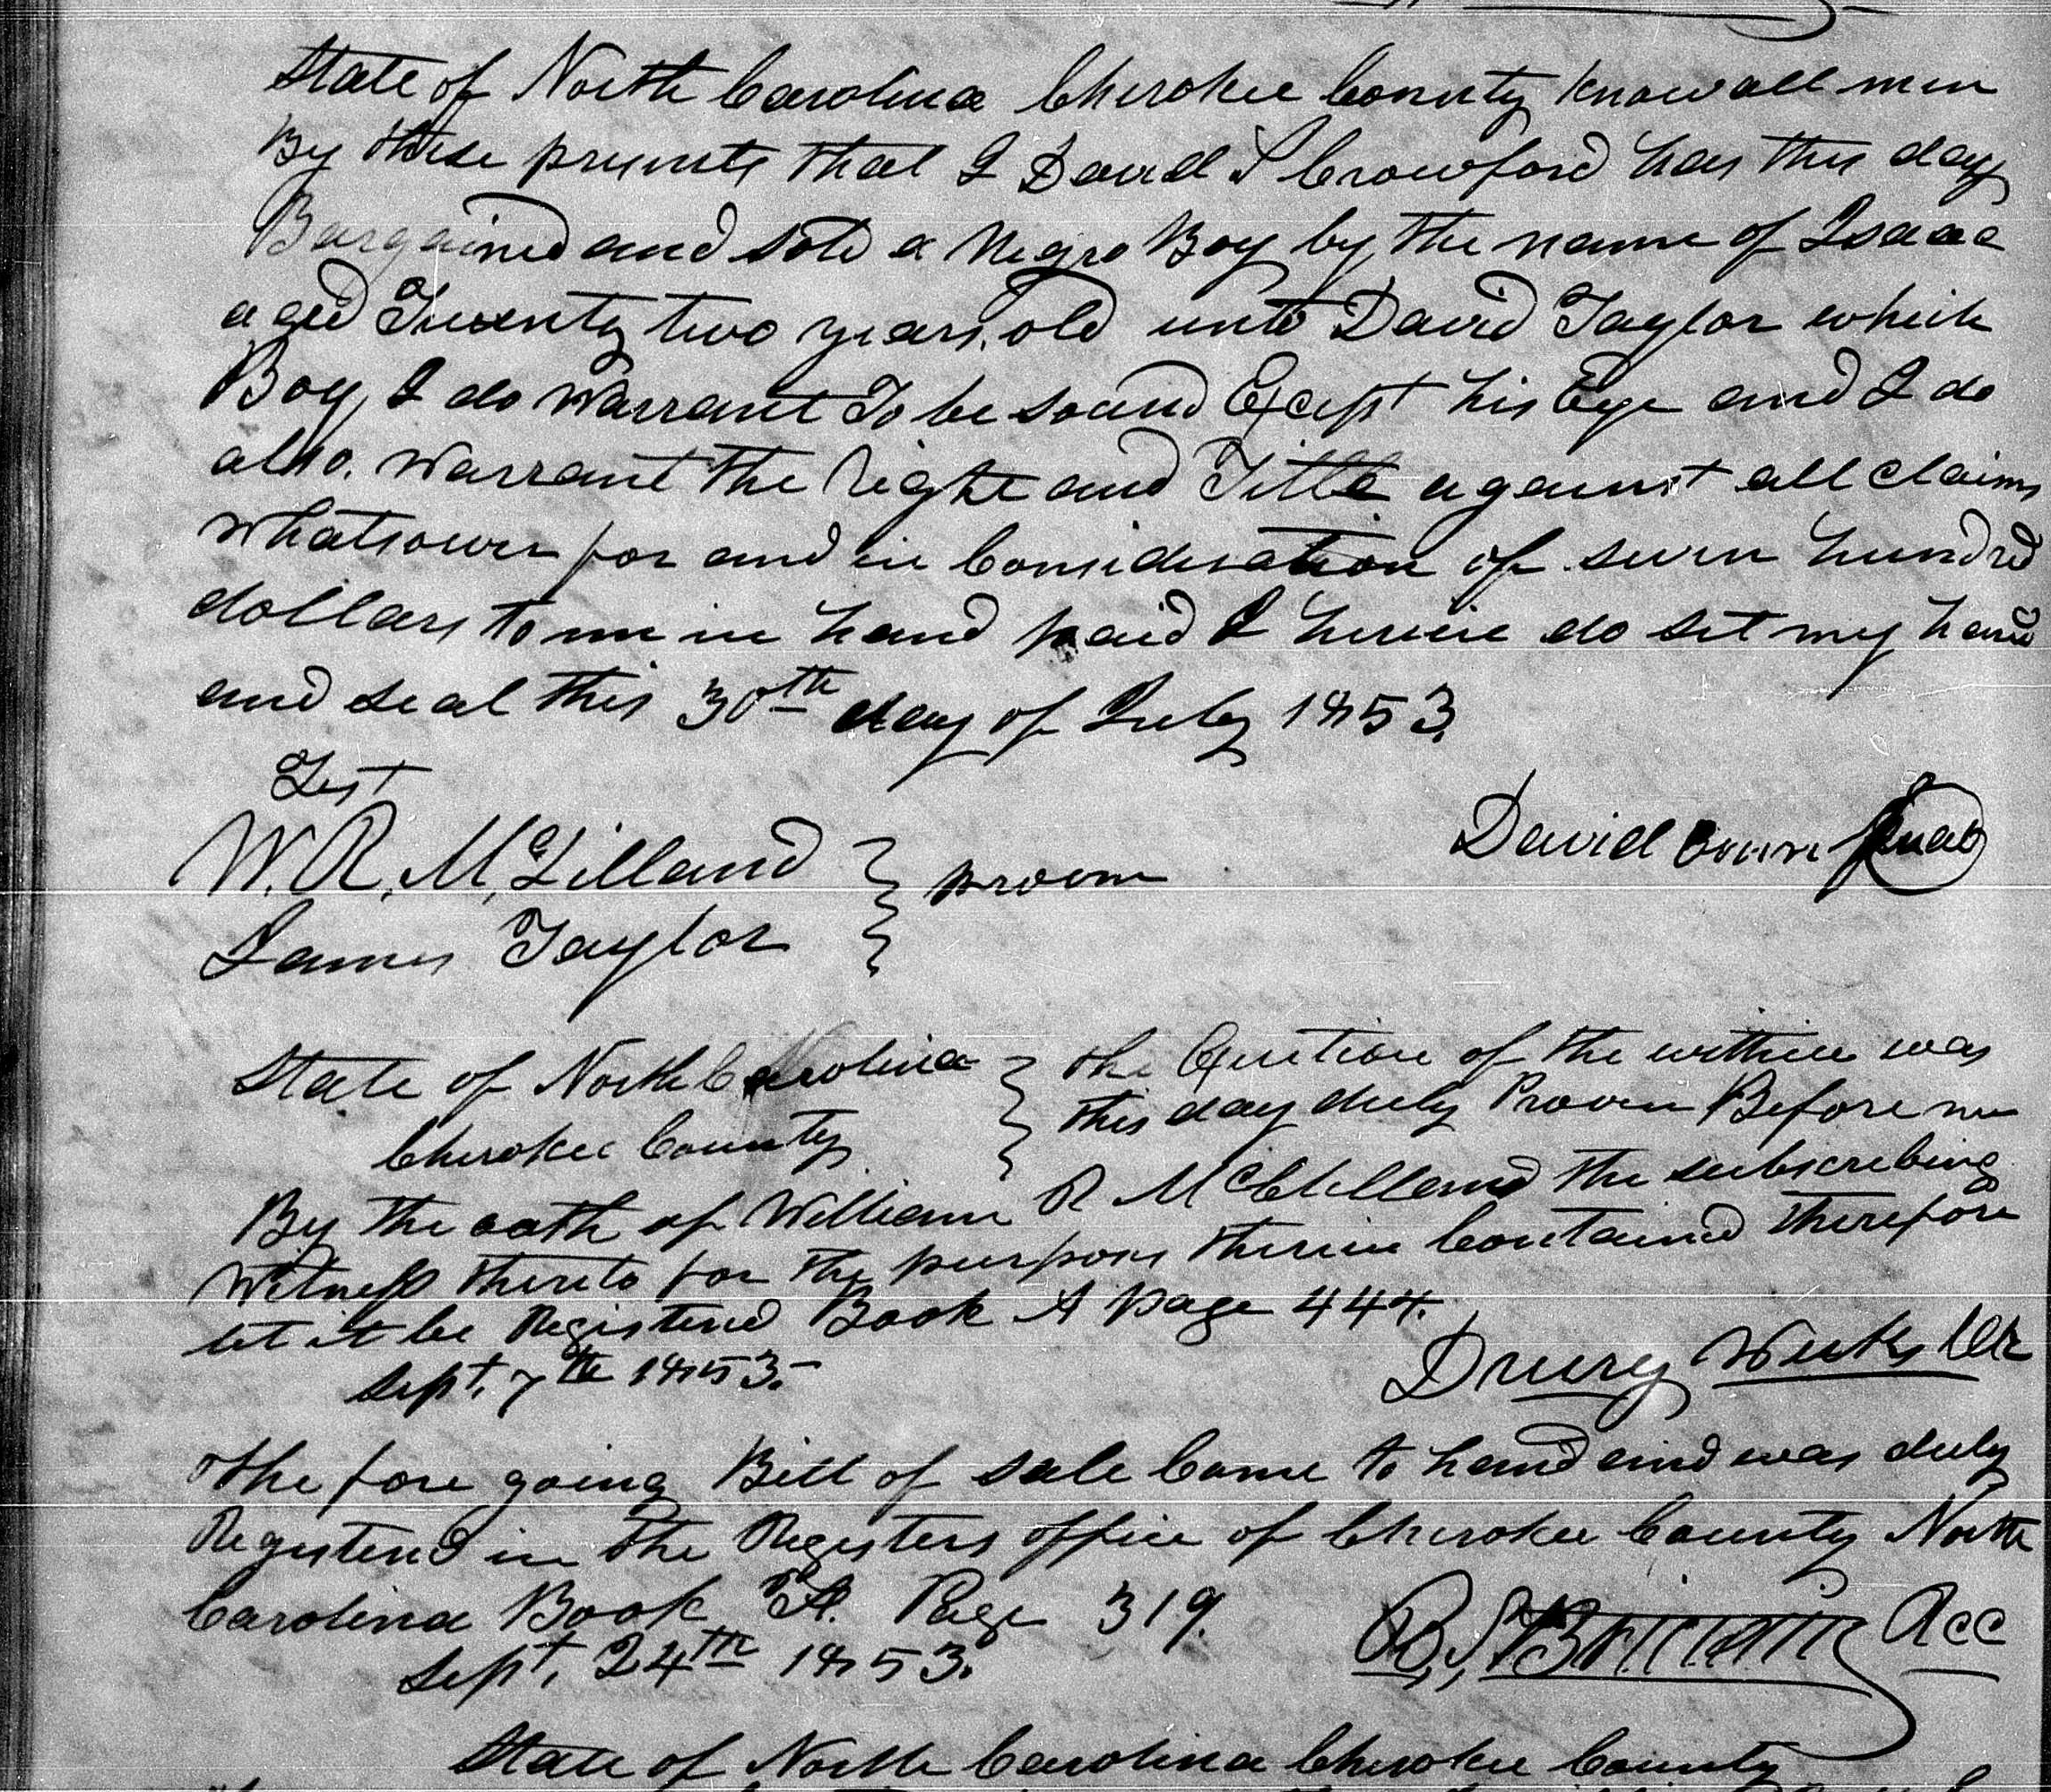 State of North Carolina Cherokee County Know all men
By these presents that I David S Crowford has this day
Bargained and sold a Negro Boy by the name of Isaac
aged Twenty two years old unto David Taylor which
Boy I do Warrant To be sound Except his Eye and I do
also. Warrant the right and Title against all claims
Whatsoever for and in Consideration of seven hundred
dollars to me in hand paid I herein do set my hand
and seal this 30th day of July 1853.
Test
W. R. McLilland } proven
David Seal
James Taylor
State of North Carolina } the Exection of the within was
Cherokee County this day duly Proven Before me
By the oath of William R McClilland the subscribing
Witness thereto for the purposes therein Contained therefore
let it be Registered Book A page 444.
Sept. 7th 1853.-
Drury Weeks Clk
The fore going Bill of sale Came to hand and was duly
Registered in the Registers office of Cherokee County North
Carolina Book A. Page 319.
Sept, 24th 1853.
State of North Carolina Cherokee County